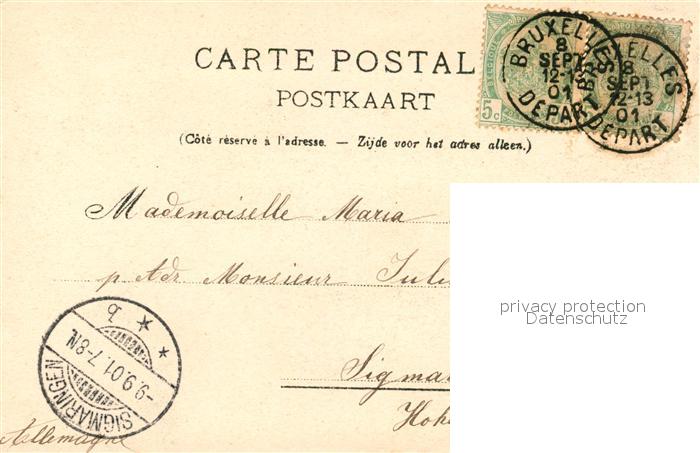 CARTE POSTAL
POSTKAART
(Côté réservé à l'adresse. — Zijde voor het adres alleen.)
5c
BRUXELLES
8
SEPT
12-13
01
DEPART
BRUXELLES
8
SEPT
12-13
01
DEPART
Mademoiselle Maria
p. Adr. Monsieur Juliu
Sigma
Hohe
Allemagne
SIGMARINGEN
-9.9.01.7-8N.
* b *
privacy protection
Datenschutz